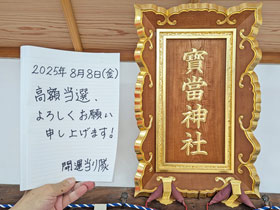 2025年8月8日(金)
高額当選、
よろしくお願い
申し上げます!
開運当り隊
寳當神社